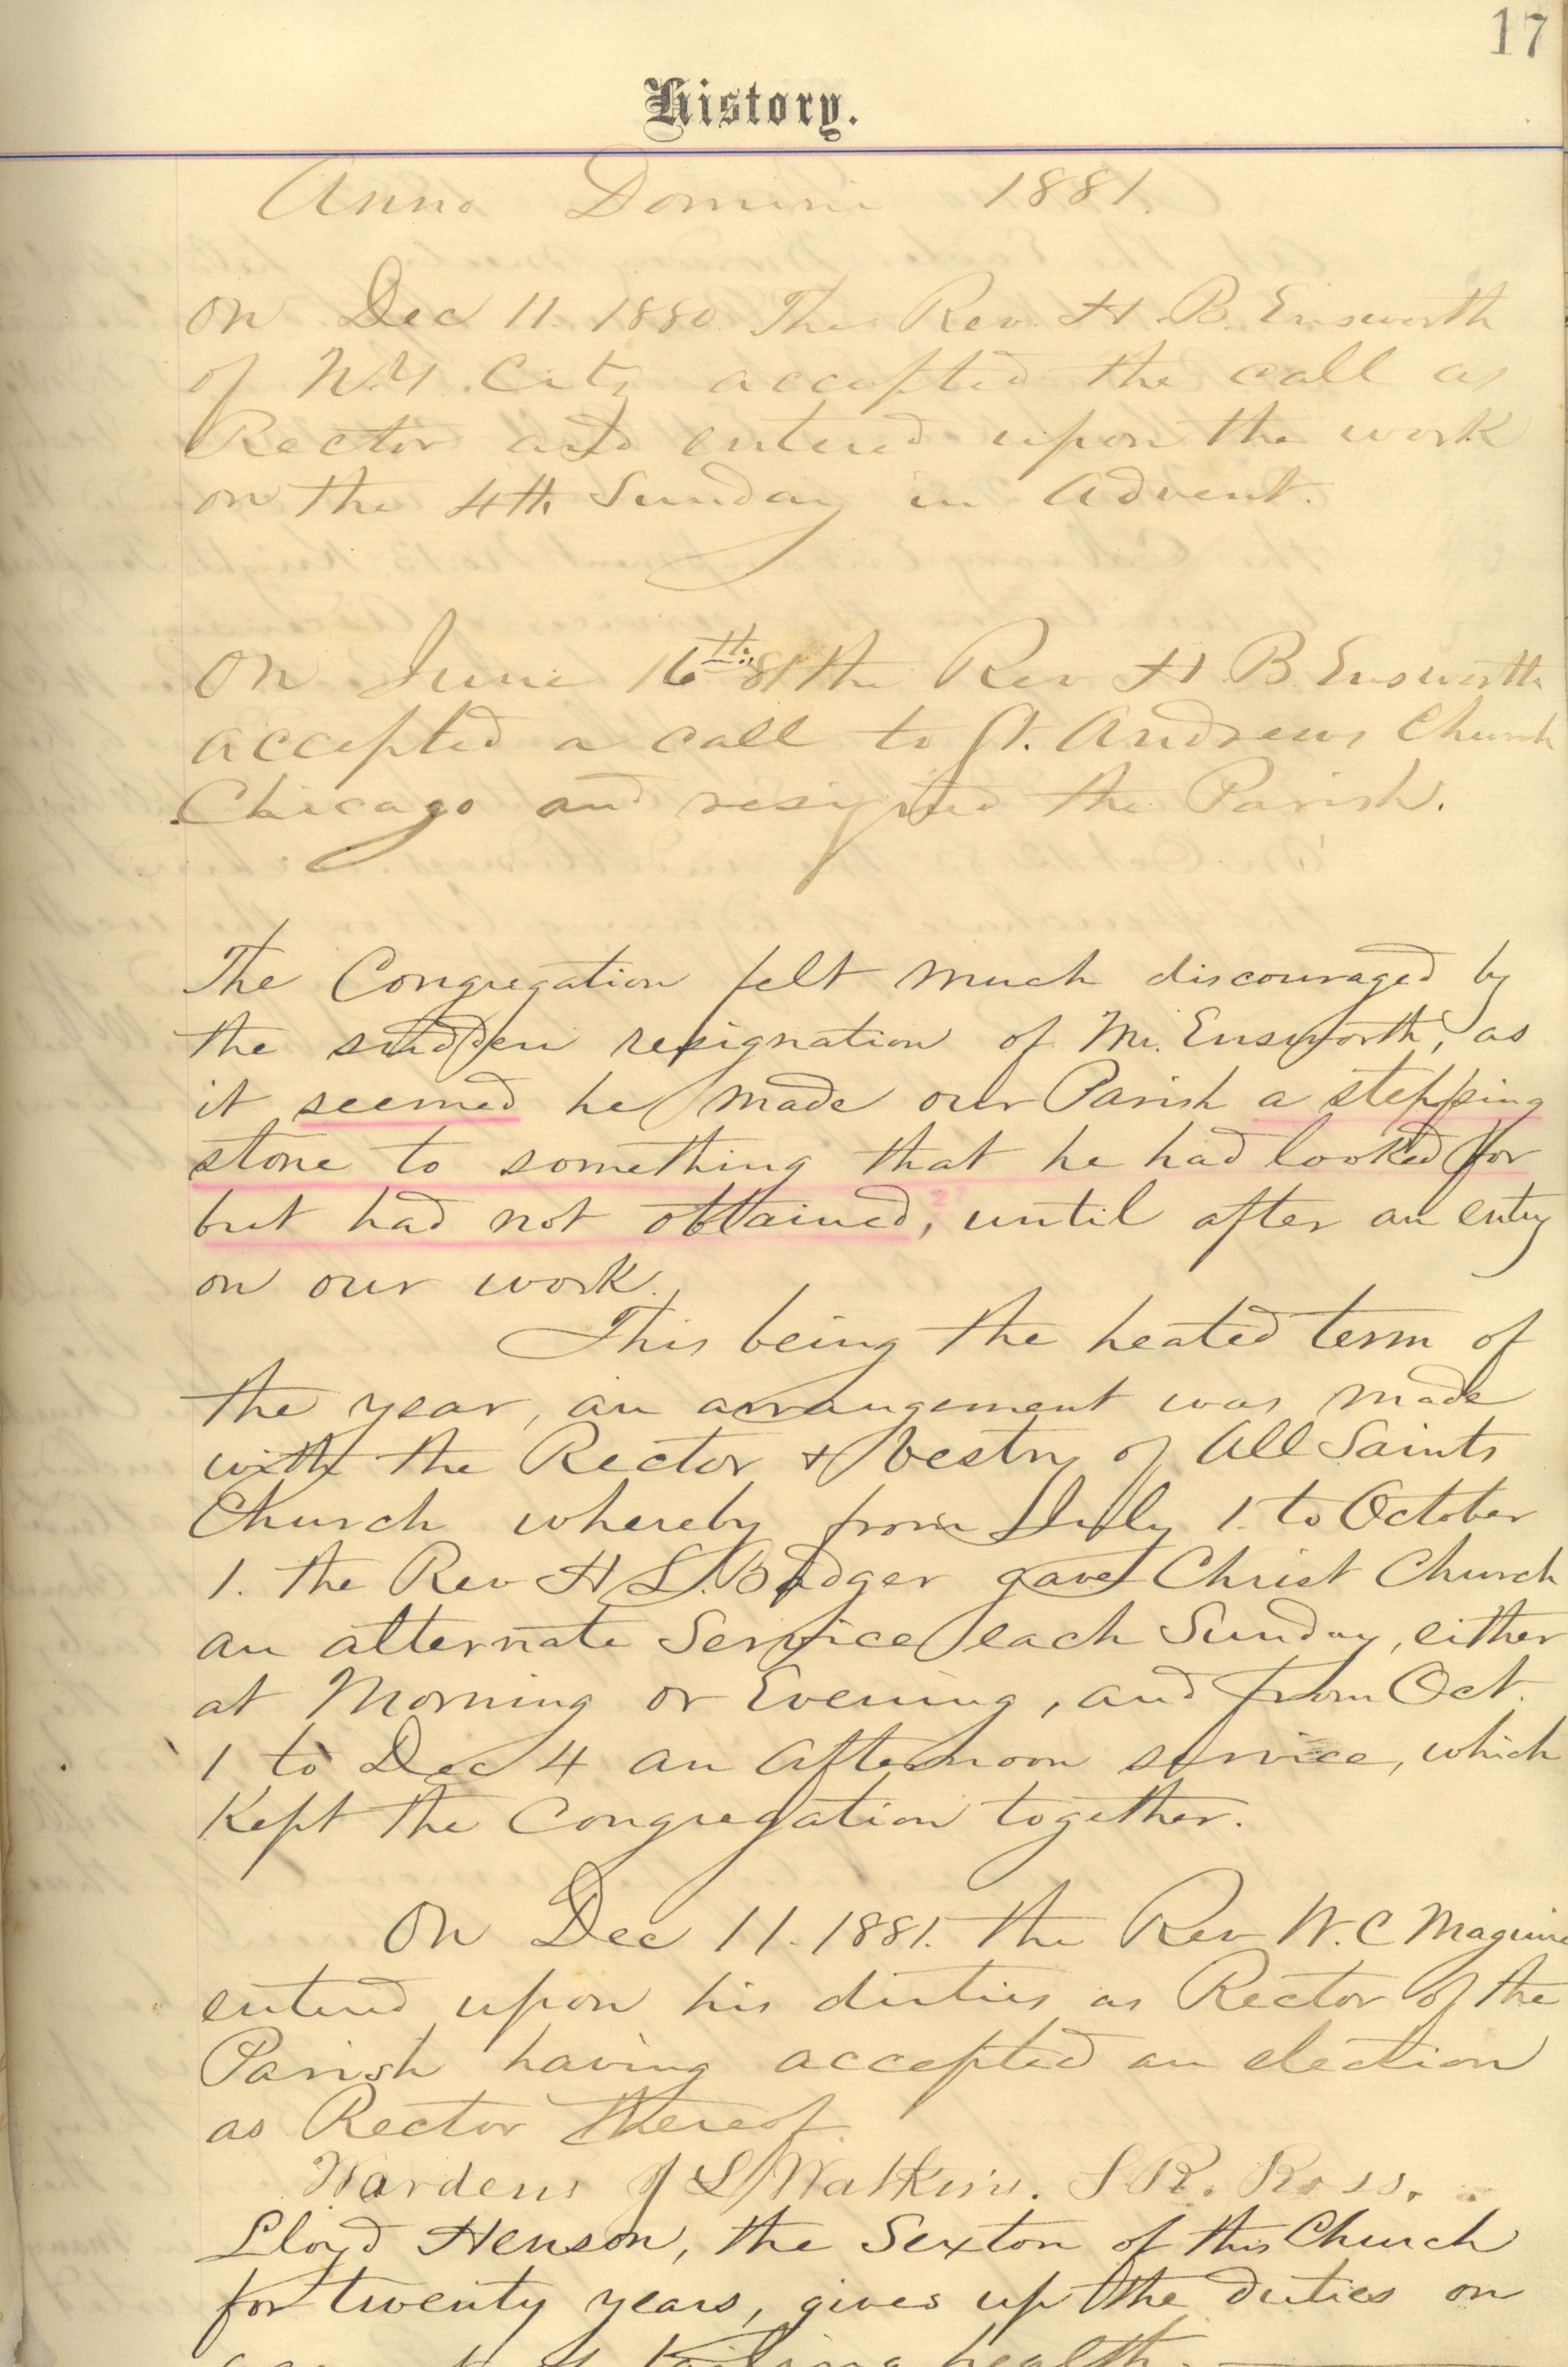 17
History.
Anno Domini 1881.
On Dec 11. 1880. The Rev. H. B. Ensworth
of N.Y. City accepted the call as
Rector and entered upon the work
on the 4th Sunday in Advent.
On June 16th 81 the Rev H B. Ensworth
accepted a call to St. Andrews Church
Chicago and resigned the Parish.
The Congregation felt much discouraged by
the sudden resignation of Mr. Ensworth, as
it seemed he made our Parish a stepping
stone to something that he had looked for
but had not obtained, until after an entry
on our work.
This being the heated term of
the year, an arrangement was made
with the Rector & Vestry of All Saints
Church whereby from July 1. to October
1. the Rev H L. Badger gave Christ Church
an alternate Service each Sunday, either
at Morning or Evening, and from Oct.
1 to Dec 4 an Afternoon service, which
Kept the Congregation together.
On Dec 11. 1881. the Rev W. C Maguire
entered upon his duties as Rector of the
Parish having accepted an election
as Rector thereof.
Wardens J L Watkins. S R. Ross.
Lloyd Henson, the Sexton of this Church
for twenty years, gives up the duties on
account of failing health.